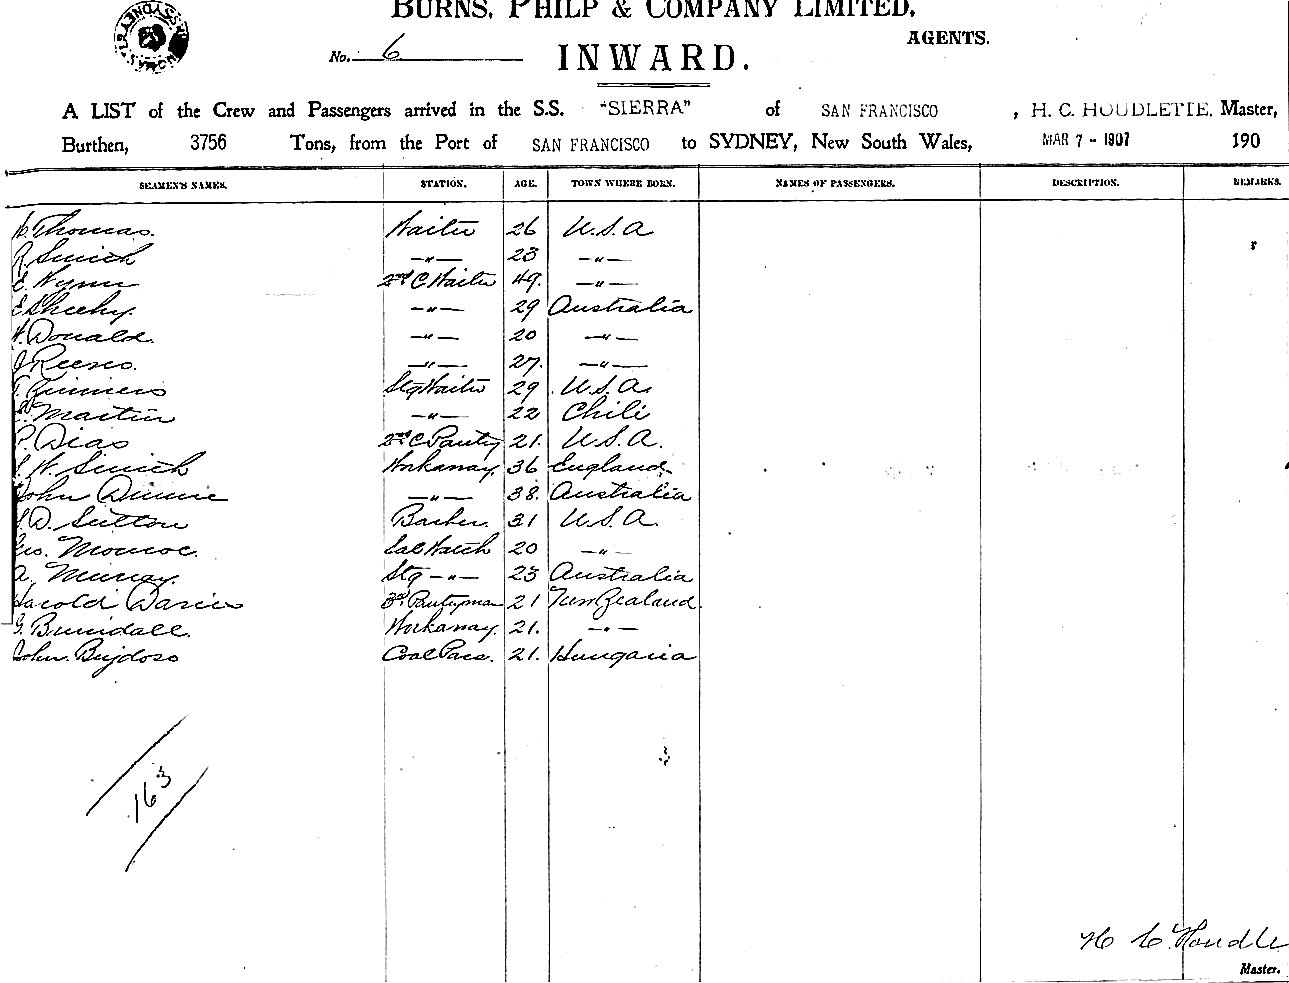 BURNS, PHILP & COMPANY LIMITED,
AGENTS.
No. 6
INWARD.
A LIST of the Crew and Passengers arrived in the S.S. "SIERRA" of SAN FRANCISCO , H. C. HOUDLETTE, Master,
Burthen, 3756 Tons, from the Port of SAN FRANCISCO to SYDNEY, New South Wales, MAR 7 - 1907 190
SEAMEN'S NAMES. STATION. AGE. TOWN WHERE BORN. NAMES OF PASSENGERS. DESCRIPTION. REMARKS.
Thomas. Waiter 26 U.S.A
R. Smith —"— 23 —"—
E. Wynn 2nd C Waiter 49. —"—
E Sheehy. —"— 29 Australia
Donald. —"— 20 —"—
J Reeves. —"— 27. —"—
Stg Waiter 29 U.S.A.
Martin —"— 22 Chili
P. Dias 2nd C Pantry 21. U.S.A.
W. Smith Workaway. 36 England
John Dunne —"— 38. Australia
D. Sutton Barber. 31 U.S.A.
Geo. Monroe. Sal Watch 20 —"—
A. Murray. Stg —"— 23 Australia
Harold Davies 3rd Pantryman 21 New Zealand.
G. Brundall. Workaway. 21. —"—
John. Bujdoso Coal Pass. 21. Hungaria
163
H C Houdle
Master.